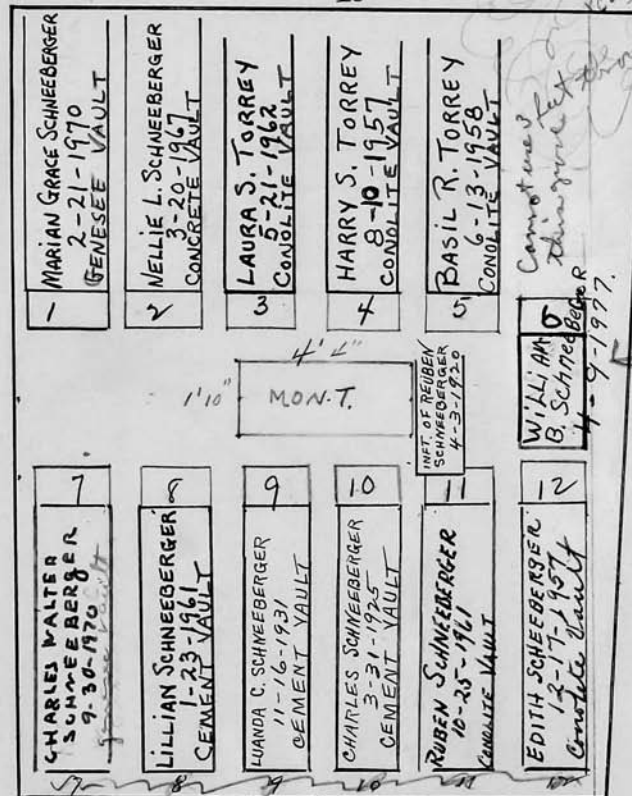 MARIAN GRACE SCHNEEBERGER
2-21-1970
GENESEE VAULT
1
NELLIE L. SCHNEEBERGER
3-20-1967
CONCRETE VAULT
2
LAURA S. TORREY
5-21-1962
CONOLITE VAULT
3
HARRY S. TORREY
8-10-1957
CONOLITE VAULT
4
BASIL R. TORREY
6-13-1958
CONOLITE VAULT
5
Cannot use
this grave
6
WILLIAM
B. SchneeBergeR
4-9-1977.
4' 4"
1'10"
MON'T.
INFT. OF REUBEN
SCHNEEBERGER
4-3-1920
7
CHARLES WALTER
SCHNEEBERGER
9-30-1970
genesee vault
8
LILLIAN SCHNEEBERGER
1-23-1961
CEMENT VAULT
9
LUANDA C. SCHNEEBERGER
11-16-1931
CEMENT VAULT
10
CHARLES SCHNEEBERGER
3-31-1925
CEMENT VAULT
11
RUBEN SCHNEEBERGER
10-25-1961
CONOLITE VAULT
12
EDITH SCHEEBERSER
12-17-1957
Conolite Vault
7
8
9
10
11
12